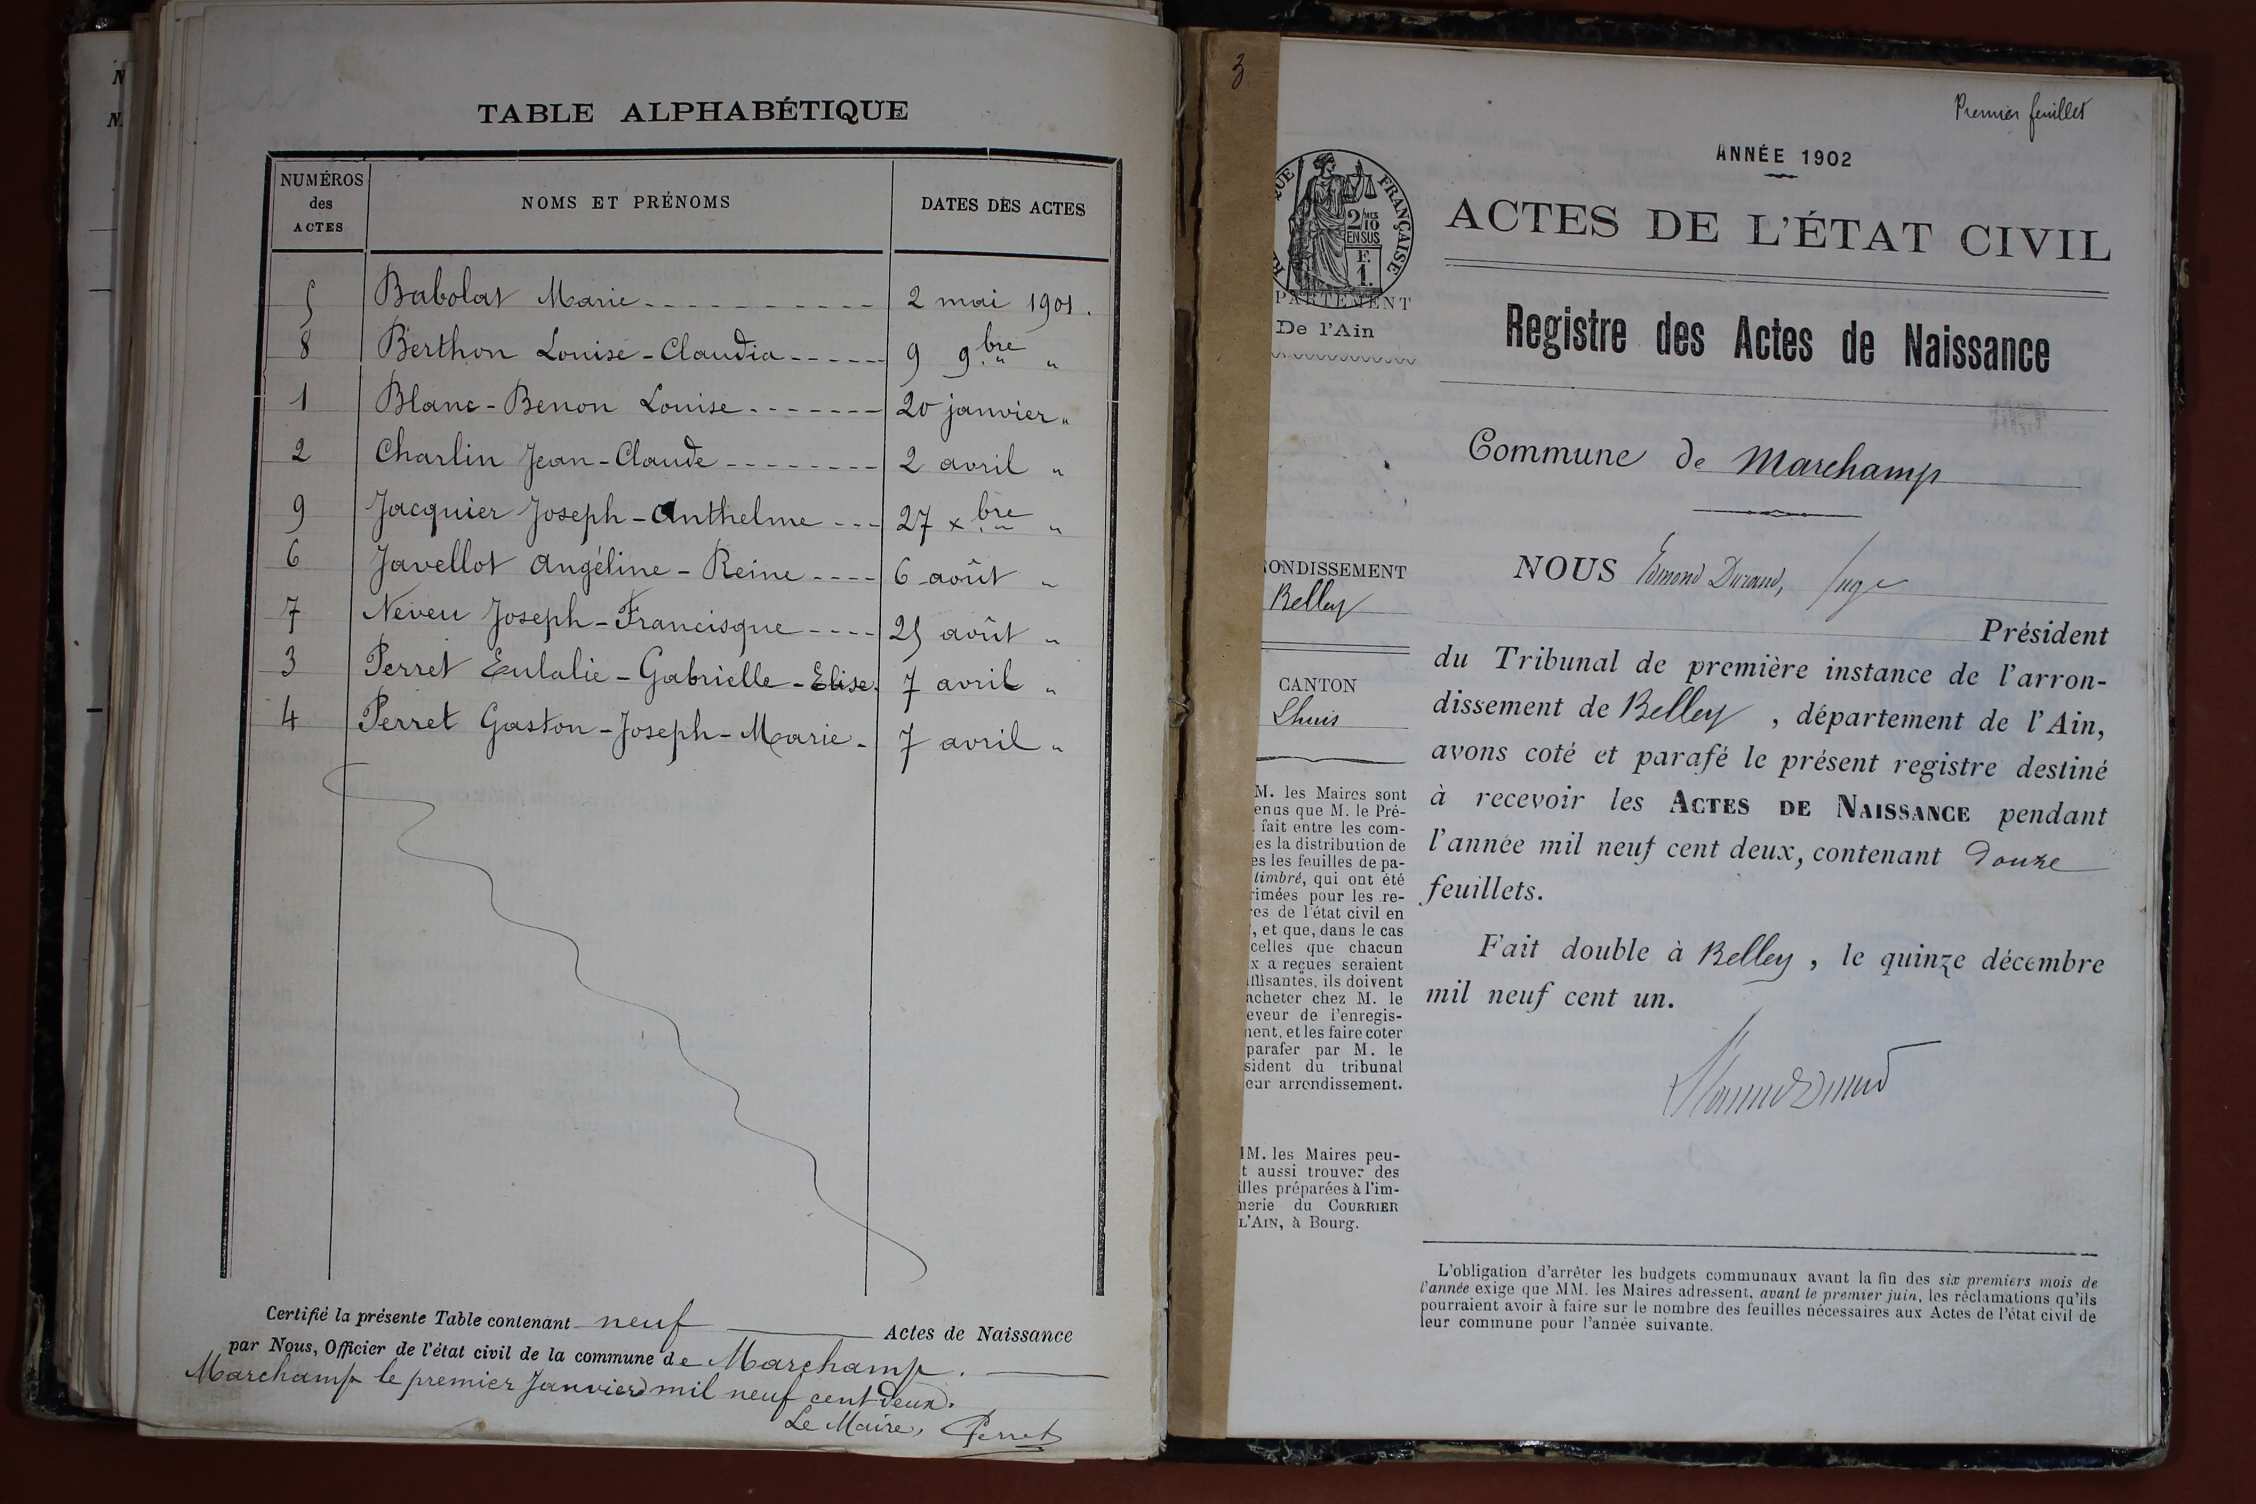 TABLE ALPHABÉTIQUE
NUMÉROS des ACTES
NOMS ET PRÉNOMS
DATES DES ACTES
5 Babolat Marie 2 mai 1901.
8 Berthon Louise-Claudia 9 9bre "
1 Blanc-Benon Louise 20 janvier "
2 Charlin Jean-Claude 2 avril "
9 Jacquier Joseph-Anthelme 27 xbre "
6 Javellot Angéline-Reine 6 août "
7 Neveu Joseph-Francisque 25 août "
3 Perret Eulalie-Gabrielle-Elise 7 avril "
4 Perret Gaston-Joseph-Marie 7 avril "
Certifié la présente Table contenant neuf Actes de Naissance
par Nous, Officier de l'état civil de la commune de Marchamp.
Marchamp le premier Janvier mil neuf cent deux.
Le Maire, Perret
3
Premier feuillet
ANNÉE 1902
QUE FRANÇAISE
2/10MES
EN SUS
F.
1.
PARTEMENT
De l'Ain
ACTES DE L'ÉTAT CIVIL
Registre des Actes de Naissance
Commune de Marchamp
ONDISSEMENT
Belley
CANTON
Lhuis
M. les Maires sont
enus que M. le Pré-
fait entre les com-
es la distribution de
es les feuilles de pa-
timbré, qui ont été
rimées pour les re-
res de l'état civil en
, et que, dans le cas
celles que chacun
x a reçues seraient
ffisantes, ils doivent
acheter chez M. le
eveur de l'enregis-
ment, et les faire coter
parafer par M. le
sident du tribunal
eur arrondissement.
MM. les Maires peu-
t aussi trouver des
illes préparées à l'im-
merie du COURRIER
L'AIN, à Bourg.
NOUS Edmond Durand, Juge
Président
du Tribunal de première instance de l'arron-
dissement de Belley, département de l'Ain,
avons coté et parafé le présent registre destiné
à recevoir les ACTES DE NAISSANCE pendant
l'année mil neuf cent deux, contenant douze
feuillets.
Fait double à Belley, le quinze décembre
mil neuf cent un.
L'obligation d'arrêter les budgets communaux avant la fin des six premiers mois de
l'année exige que MM. les Maires adressent, avant le premier juin, les réclamations qu'ils
pourraient avoir à faire sur le nombre des feuilles nécessaires aux Actes de l'état civil de
leur commune pour l'année suivante.